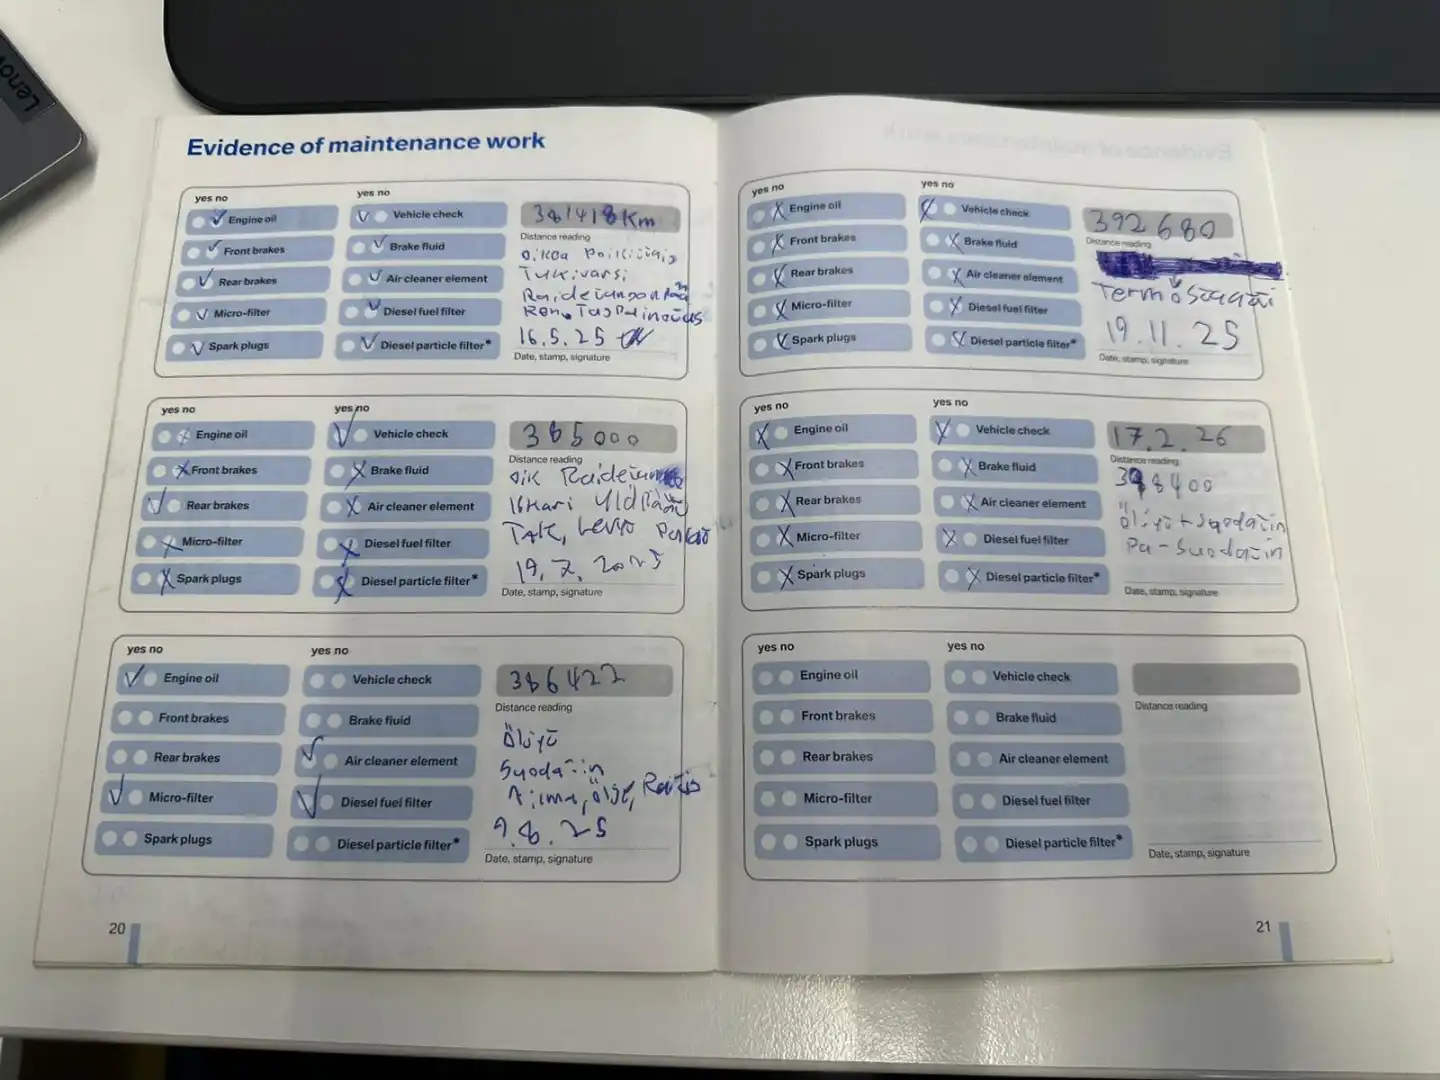 Lenovo
Evidence of maintenance work
yes no
yes no
Engine oil
Vehicle check
381418 Km
Distance reading
Front brakes
Brake fluid
oikea Poikittais
Rear brakes
Air cleaner element
Tukivarsi
Micro-filter
Diesel fuel filter
Spark plugs
Diesel particle filter*
16.5.25
Date, stamp, signature
yes no
yes no
Engine oil
Vehicle check
385000
Distance reading
Front brakes
Brake fluid
oik
Rear brakes
Air cleaner element
Micro-filter
Diesel fuel filter
TAK, Levyt
Spark plugs
Diesel particle filter*
19.7.2025
Date, stamp, signature
yes no
yes no
Engine oil
Vehicle check
386422
Distance reading
Front brakes
Brake fluid
Öljyt
Rear brakes
Air cleaner element
Suodatin
Micro-filter
Diesel fuel filter
ilma, öljy, Raitis
Spark plugs
Diesel particle filter*
Date, stamp, signature
20
yes no
yes no
Engine oil
Vehicle check
392680
Distance reading
Front brakes
Brake fluid
Rear brakes
Air cleaner element
Termostaatti
Micro-filter
Diesel fuel filter
19.11.25
Spark plugs
Diesel particle filter*
Date, stamp, signature
yes no
yes no
Engine oil
Vehicle check
17.2.26
Distance reading
Front brakes
Brake fluid
398400
Rear brakes
Air cleaner element
Öljyt + suodatin
Micro-filter
Diesel fuel filter
Pa-suodatin
Spark plugs
Diesel particle filter*
Date, stamp, signature
yes no
yes no
Engine oil
Vehicle check
Distance reading
Front brakes
Brake fluid
Rear brakes
Air cleaner element
Micro-filter
Diesel fuel filter
Spark plugs
Diesel particle filter*
Date, stamp, signature
21